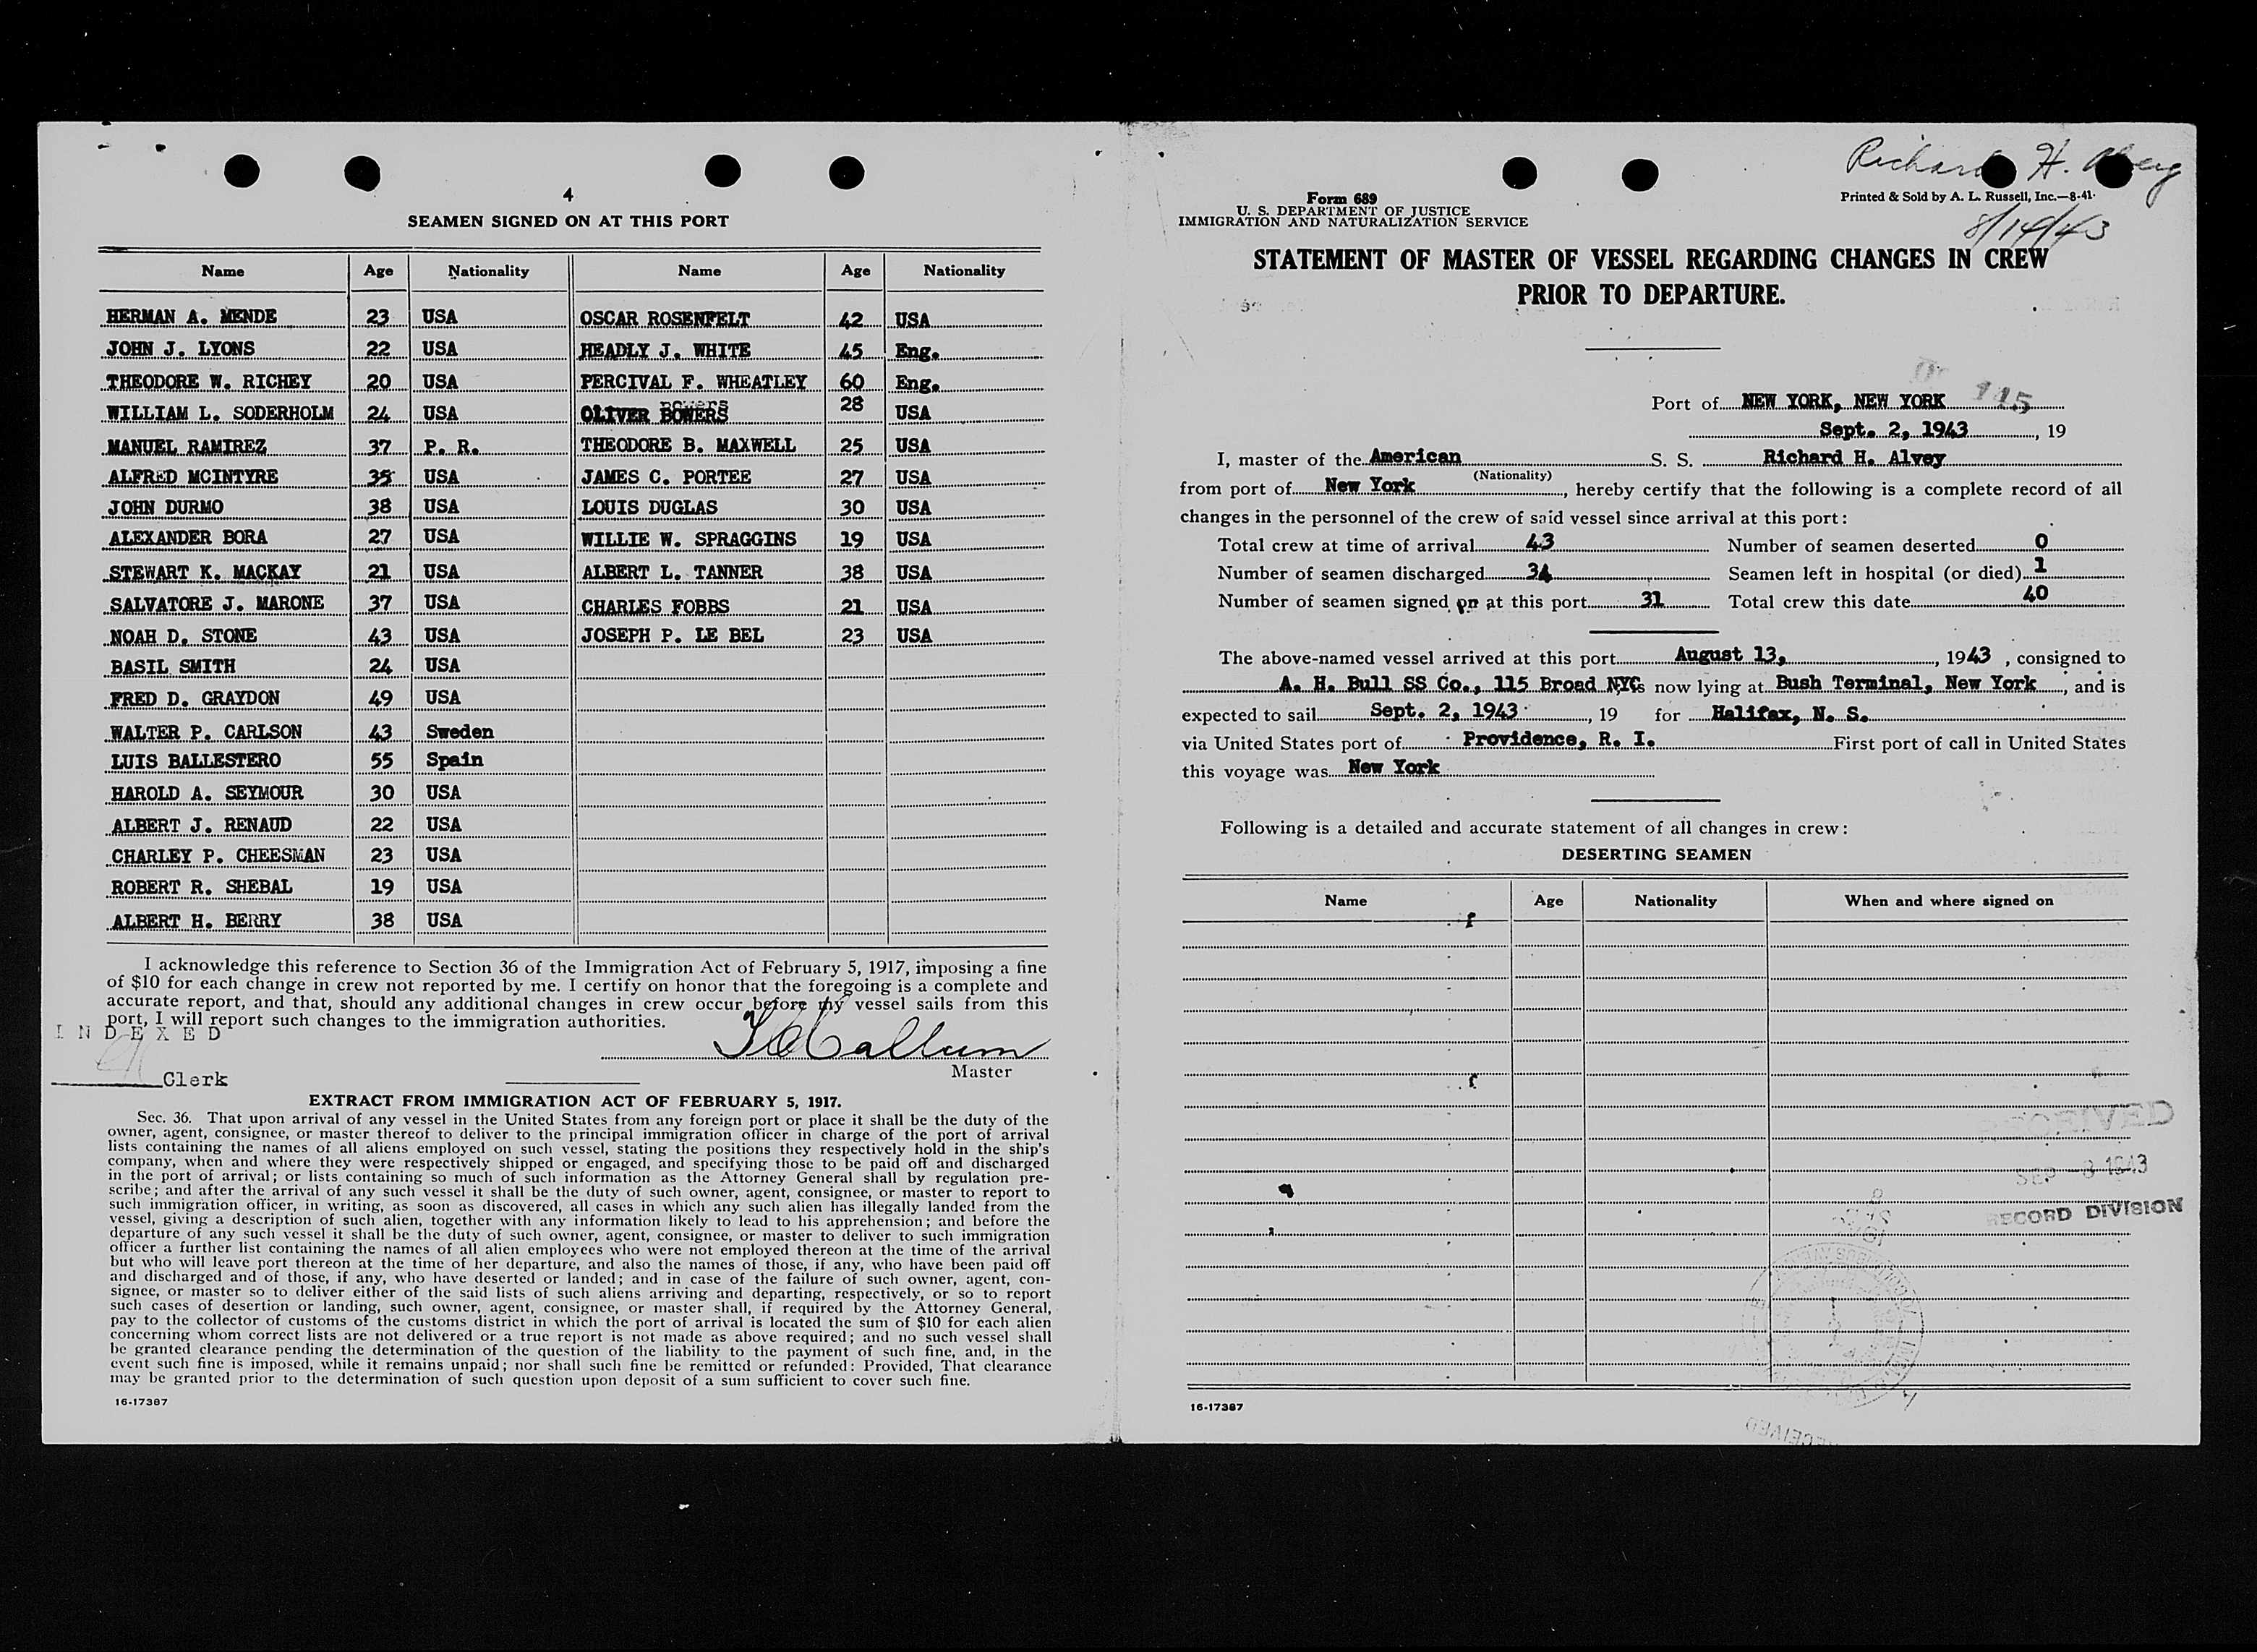 4
SEAMEN SIGNED ON AT THIS PORT
Name Age Nationality Name Age Nationality
HERMAN A. MENDE 23 USA OSCAR ROSENFELT 42 USA
JOHN J. LYONS 22 USA HEADLY J. WHITE 45 Eng.
THEODORE W. RICHEY 20 USA PERCIVAL F. WHEATLEY 60 Eng.
WILLIAM L. SODERHOLM 24 USA OLIVER BOWERS 28 USA
MANUEL RAMIREZ 37 P. R. THEODORE B. MAXWELL 25 USA
ALFRED MCINTYRE 35 USA JAMES C. PORTEE 27 USA
JOHN DURMO 38 USA LOUIS DUGLAS 30 USA
ALEXANDER BORA 27 USA WILLIE W. SPRAGGINS 19 USA
STEWART K. MACKAY 21 USA ALBERT L. TANNER 38 USA
SALVATORE J. MARONE 37 USA CHARLES FOBBS 21 USA
NOAH D. STONE 43 USA JOSEPH P. LE BEL 23 USA
BASIL SMITH 24 USA
FRED D. GRAYDON 49 USA
WALTER P. CARLSON 43 Sweden
LUIS BALLESTERO 55 Spain
HAROLD A. SEYMOUR 30 USA
ALBERT J. RENAUD 22 USA
CHARLEY P. CHEESMAN 23 USA
ROBERT R. SHEBAL 19 USA
ALBERT H. BERRY 38 USA
I acknowledge this reference to Section 36 of the Immigration Act of February 5, 1917, imposing a fine
of $10 for each change in crew not reported by me. I certify on honor that the foregoing is a complete and
accurate report, and that, should any additional changes in crew occur before my vessel sails from this
port, I will report such changes to the immigration authorities.
INDEXED
Clerk
Master
EXTRACT FROM IMMIGRATION ACT OF FEBRUARY 5, 1917.
Sec. 36. That upon arrival of any vessel in the United States from any foreign port or place it shall be the duty of the
owner, agent, consignee, or master thereof to deliver to the principal immigration officer in charge of the port of arrival
lists containing the names of all aliens employed on such vessel, stating the positions they respectively hold in the ship's
company, when and where they were respectively shipped or engaged, and specifying those to be paid off and discharged
in the port of arrival; or lists containing so much of such information as the Attorney General shall by regulation pre-
scribe; and after the arrival of any such vessel it shall be the duty of such owner, agent, consignee, or master to report to
such immigration officer, in writing, as soon as discovered, all cases in which any such alien has illegally landed from the
vessel, giving a description of such alien, together with any information likely to lead to his apprehension; and before the
departure of any such vessel it shall be the duty of such owner, agent, consignee, or master to deliver to such immigration
officer a further list containing the names of all alien employees who were not employed thereon at the time of the arrival
but who will leave port thereon at the time of her departure, and also the names of those, if any, who have been paid off
and discharged and of those, if any, who have deserted or landed; and in case of the failure of such owner, agent, con-
signee, or master so to deliver either of the said lists of such aliens arriving and departing, respectively, or so to report
such cases of desertion or landing, such owner, agent, consignee, or master shall, if required by the Attorney General,
pay to the collector of customs of the customs district in which the port of arrival is located the sum of $10 for each alien
concerning whom correct lists are not delivered or a true report is not made as above required; and no such vessel shall
be granted clearance pending the determination of the question of the liability to the payment of such fine, and, in the
event such fine is imposed, while it remains unpaid; nor shall such fine be remitted or refunded: Provided, That clearance
may be granted prior to the determination of such question upon deposit of a sum sufficient to cover such fine.
16-17387
Richard H.
Form 689
U. S. DEPARTMENT OF JUSTICE
IMMIGRATION AND NATURALIZATION SERVICE
Printed & Sold by A. L. Russell, Inc.—8-41
8/14/43
STATEMENT OF MASTER OF VESSEL REGARDING CHANGES IN CREW
PRIOR TO DEPARTURE.
Port of NEW YORK, NEW YORK
Sept. 2, 1943, 19
I, master of the American S. S. Richard H. Alvey
(Nationality)
from port of New York, hereby certify that the following is a complete record of all
changes in the personnel of the crew of said vessel since arrival at this port:
Total crew at time of arrival 43 Number of seamen deserted 0
Number of seamen discharged 34 Seamen left in hospital (or died) 1
Number of seamen signed on at this port 31 Total crew this date 40
The above-named vessel arrived at this port August 13, , 1943 , consigned to
A. H. Bull SS Co., 115 Broad NYC, now lying at Bush Terminal, New York, and is
expected to sail Sept. 2, 1943, 19 for Halifax, N. S.
via United States port of Providence, R. I. First port of call in United States
this voyage was New York
Following is a detailed and accurate statement of all changes in crew:
DESERTING SEAMEN
Name Age Nationality When and where signed on
RECEIVED
SEP -8 1943
RECORD DIVISION
RECEIVED
16-17387